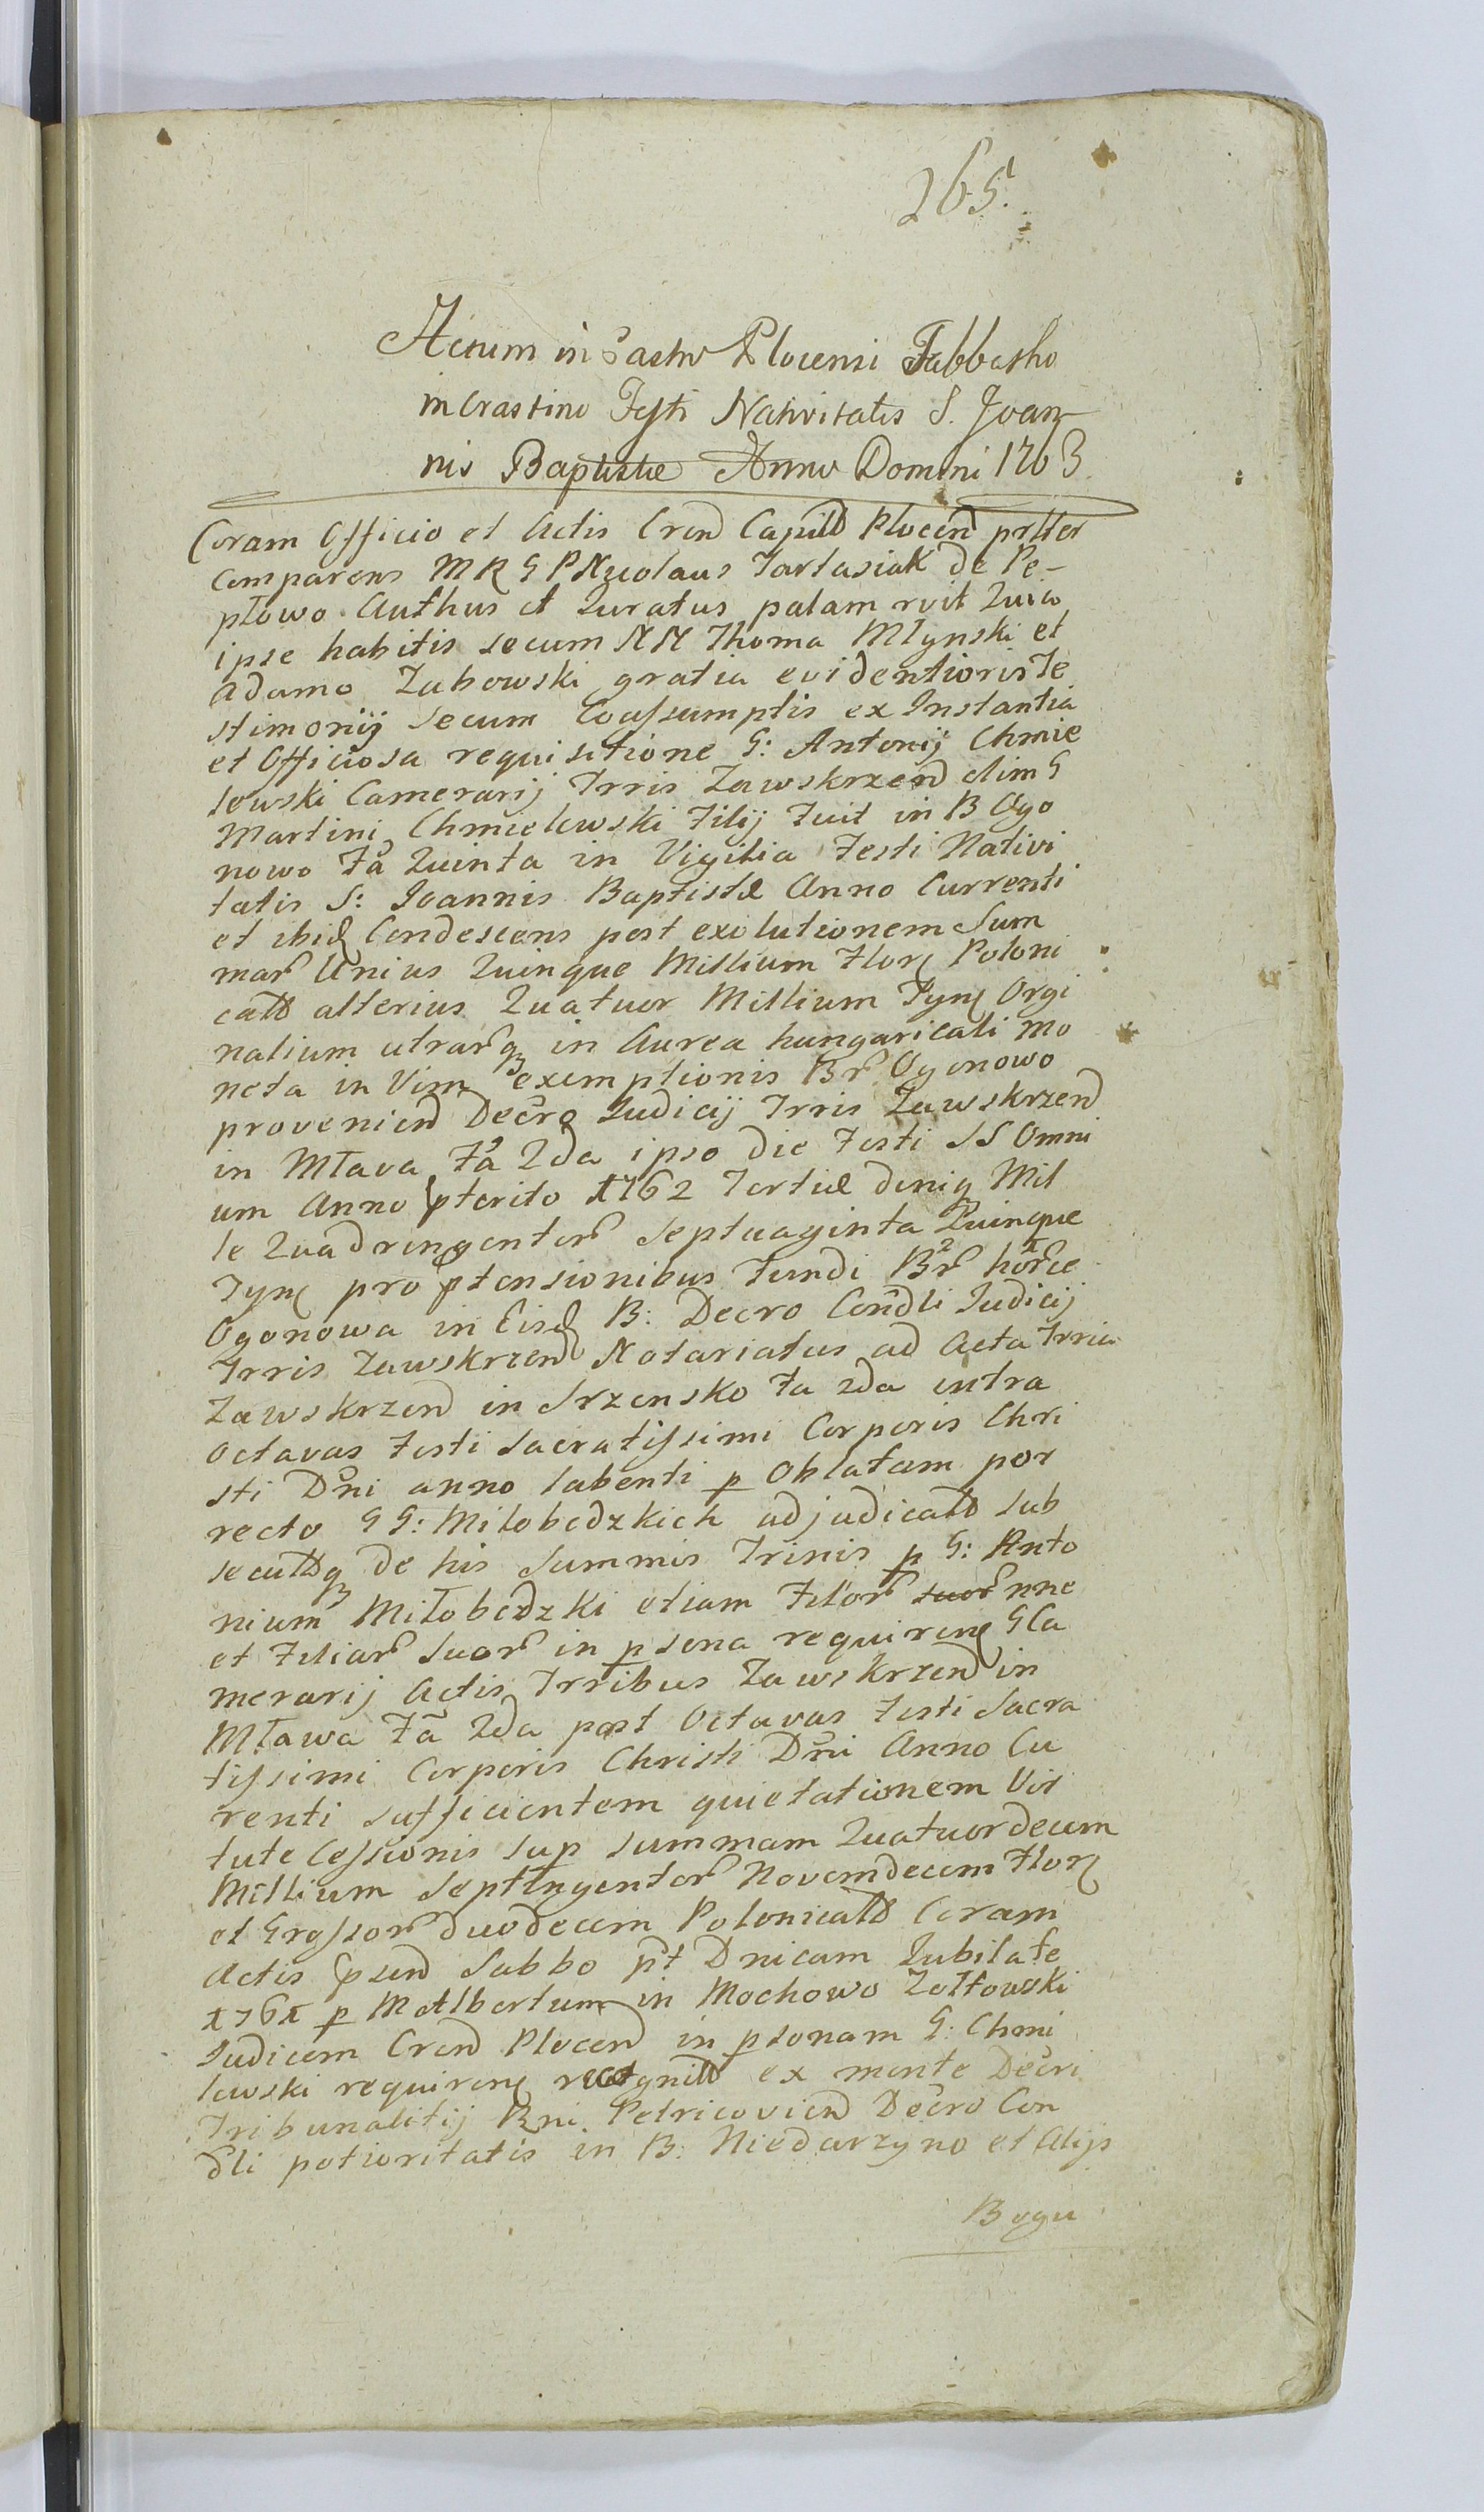 265.
Actum in Castro Plocensi Sabbatho
in Crastino Festi Nativitatis S. Joan-
nis Baptistæ Anno Domini 1763
Coram Officio et Actis Cren̄ Capitt Plocen̄ prlter
Comparens MRGP Nicolaus Tartasiak de Pe-
płowo Authus et Juratus palam rvit Quia
ipse habitis secum NN Thoma Młynski et
Adamo Zabowski gratia evidentioris Te
stimonij secum Coassumptis ex Instantia
et Officiosa requisitione G: Antonij Chmie
lewski Camerarij Trris Zawskrzen̄ olim G
Martini Chmielewski Filij Fuit in B Ogo
nowo Fa Quinta in Vigilia Festi Nativi
tatis S: Joannis Baptistæ Anno Currenti
et ibid Condescens post exolutionem Sum
mar Unius Quinque Millium Flor Poloni
catt alterius Quatuor Millium Tyn Orgi
nalium utrarq in Aurea hungaricali mo
neta in Vim exemptionis Br Ogonowo
provenien̄ Decro Judicij Trris Zawskrzen̄
in Mława Fa 2da ipso die Festi SS Omni
um Anno pterito 1762 Tertiæ deniq Mil
le Quadringentor Septuaginta Quinque
Tyn pro ptensionibus Fundi Br horce
Ogonowa in Eisd B: Decro Condli Judicij
Trris Zawskrzen̄ Notariatus ad Acta Trria
Zawskrzen̄ in Srzensko Fa 2da intra
Octavas Festi Sacratissimi Corporis Chri
sti Dni anno labenti p Oblatam por
recto GG: Miłobedzkich adjudicatt sub
secuttq de his Summis Trinis p G: Anto
nium Miłobedzki etiam Filior suor nne
et Filiar Suor in psona requiren G Ca
merarij Actis Trribus Zawskrzen̄ in
Mława Fa 2da post Octavas Festi Sacra
tissimi Corporis Christi Dni Anno Cu
renti sufficientem quietationem Vir
tute Cessionis sup summam Quatuordecim
Millium Septingentor Novemdecem Flor
et Grossor duodecim Polonicatt Coram
Actis psen̄ Sabbo pt Dnicam Jubilate
1761 p M Albertum in Mochowo Zołtowski
Judicem Cren̄ Plocen̄ in psonam G: Chmi
lewski requiren recognitt ex mente Decri
Tribunalitij Rni Petricovien̄ Decro Con
dli potioritatis in B: Niedarzyno et Alijs
Bogu